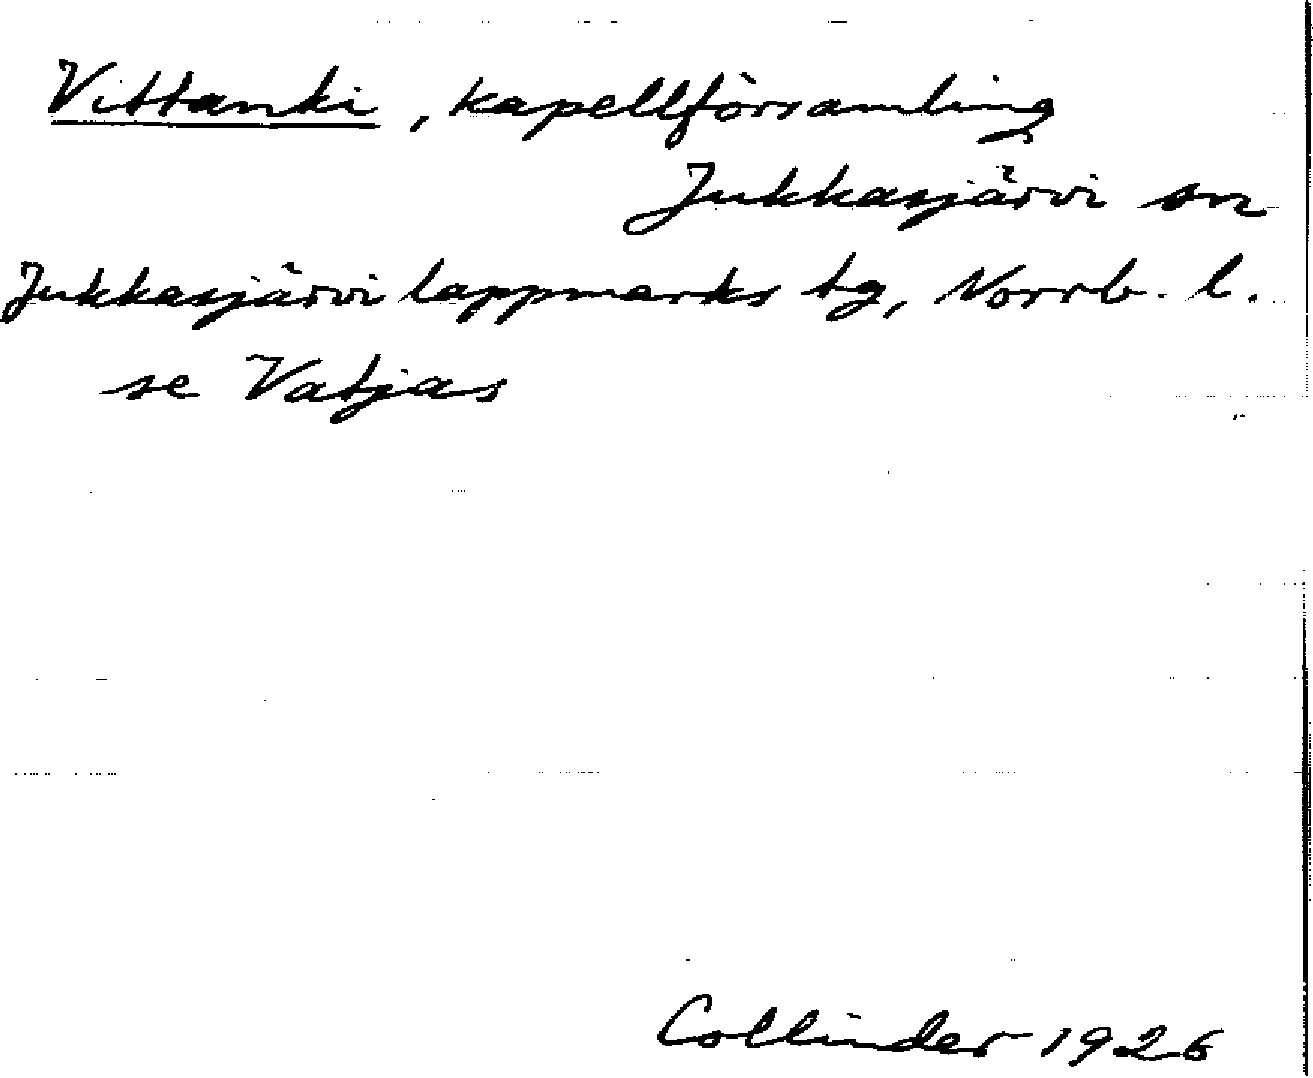 Vittanki, kapellförsamling
Jukkasjärvi sn
Jukkasjärvi lappmarks tg, Norrb. l.
se Vatjas
Collinder 1926